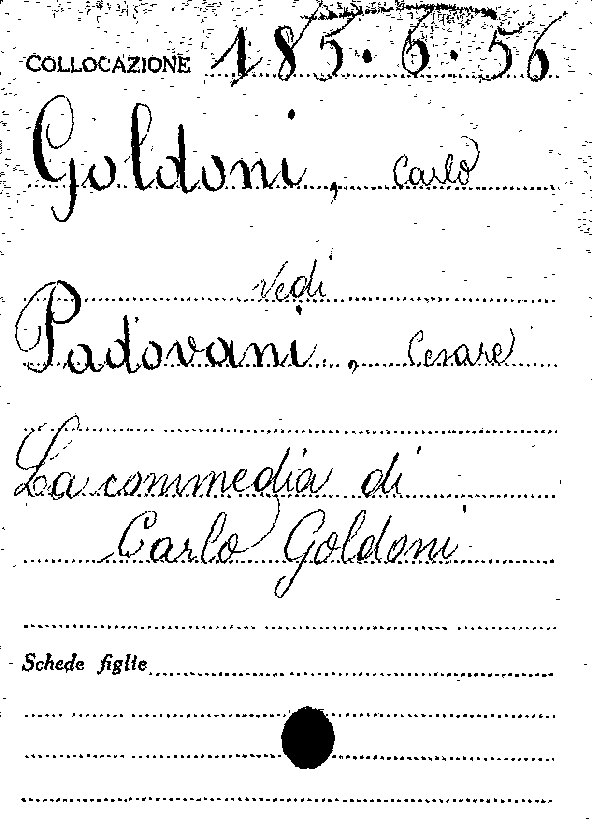 COLLOCAZIONE 185.6.56
Goldoni, Carlo
vedi
Padovani, Cesare
La commedia di
Carlo Goldoni
Schede figlie